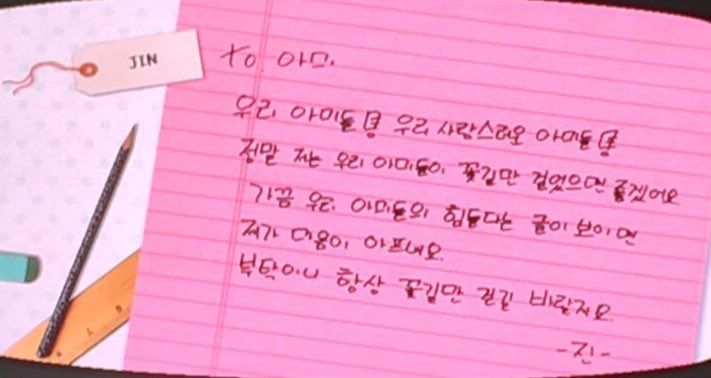 JIN
to 아미.
우리 아미들 우리 사랑스러운 아미들
정말 저는 우리 아미들이 꽃길만 걸었으면 좋겠어요
가끔 우리 아미들의 힘들다는 글이 보이면
저가 마음이 아프네요.
부탁이니 항상 꽃길만 걷길 바랄게요
-진-